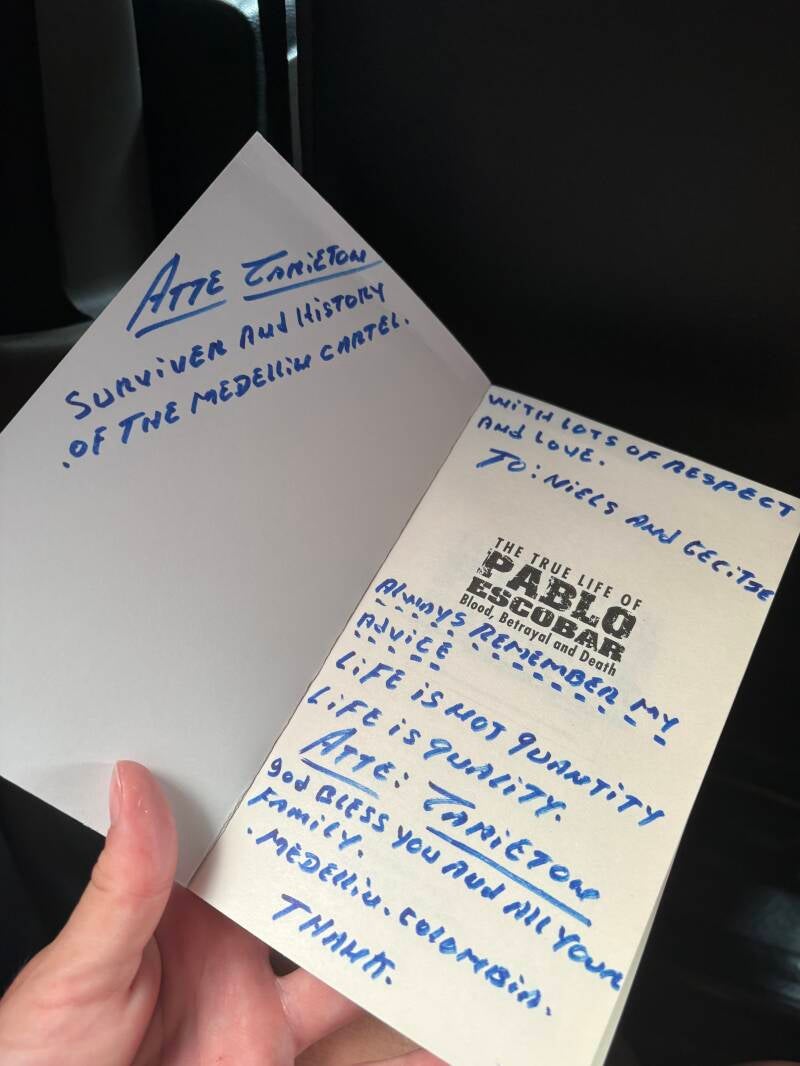 ATTE TANiETON
SURViVER AnD HiSTORY
.OF THE MEDElliN CARTEL.
WiTH LOTS OF RESPECT
AnD LOVE.
TO: NiELS AnD GECiTSE
THE TRUE LIFE OF
PABLO
ESCOBAR
Blood, Betrayal and Death
AlwAyS REMEMBER MY
ADViCE
LiFE iS NOT QUANTiTY
LiFE iS QUALiTY.
ATTE: TANiETON
god BLESS YOU AnD All YOUR
FAMiLY.
.MEDElliN.COLOMBiA.
THANK.